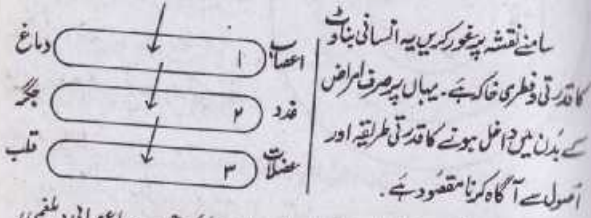 سامنے نقشہ پر غور کریں یہ انسانی بناوٹ
کا قدرتی و فطری خاکہ ہے۔ یہاں پر صرف امراض
کے بدن میں داخل ہونے کا قدرتی طریقہ اور
اصول سے آگاہ کرنا مقصود ہے۔
اعصاب ۱ دماغ
غدد ۲ جگر
عضلات ۳ قلب